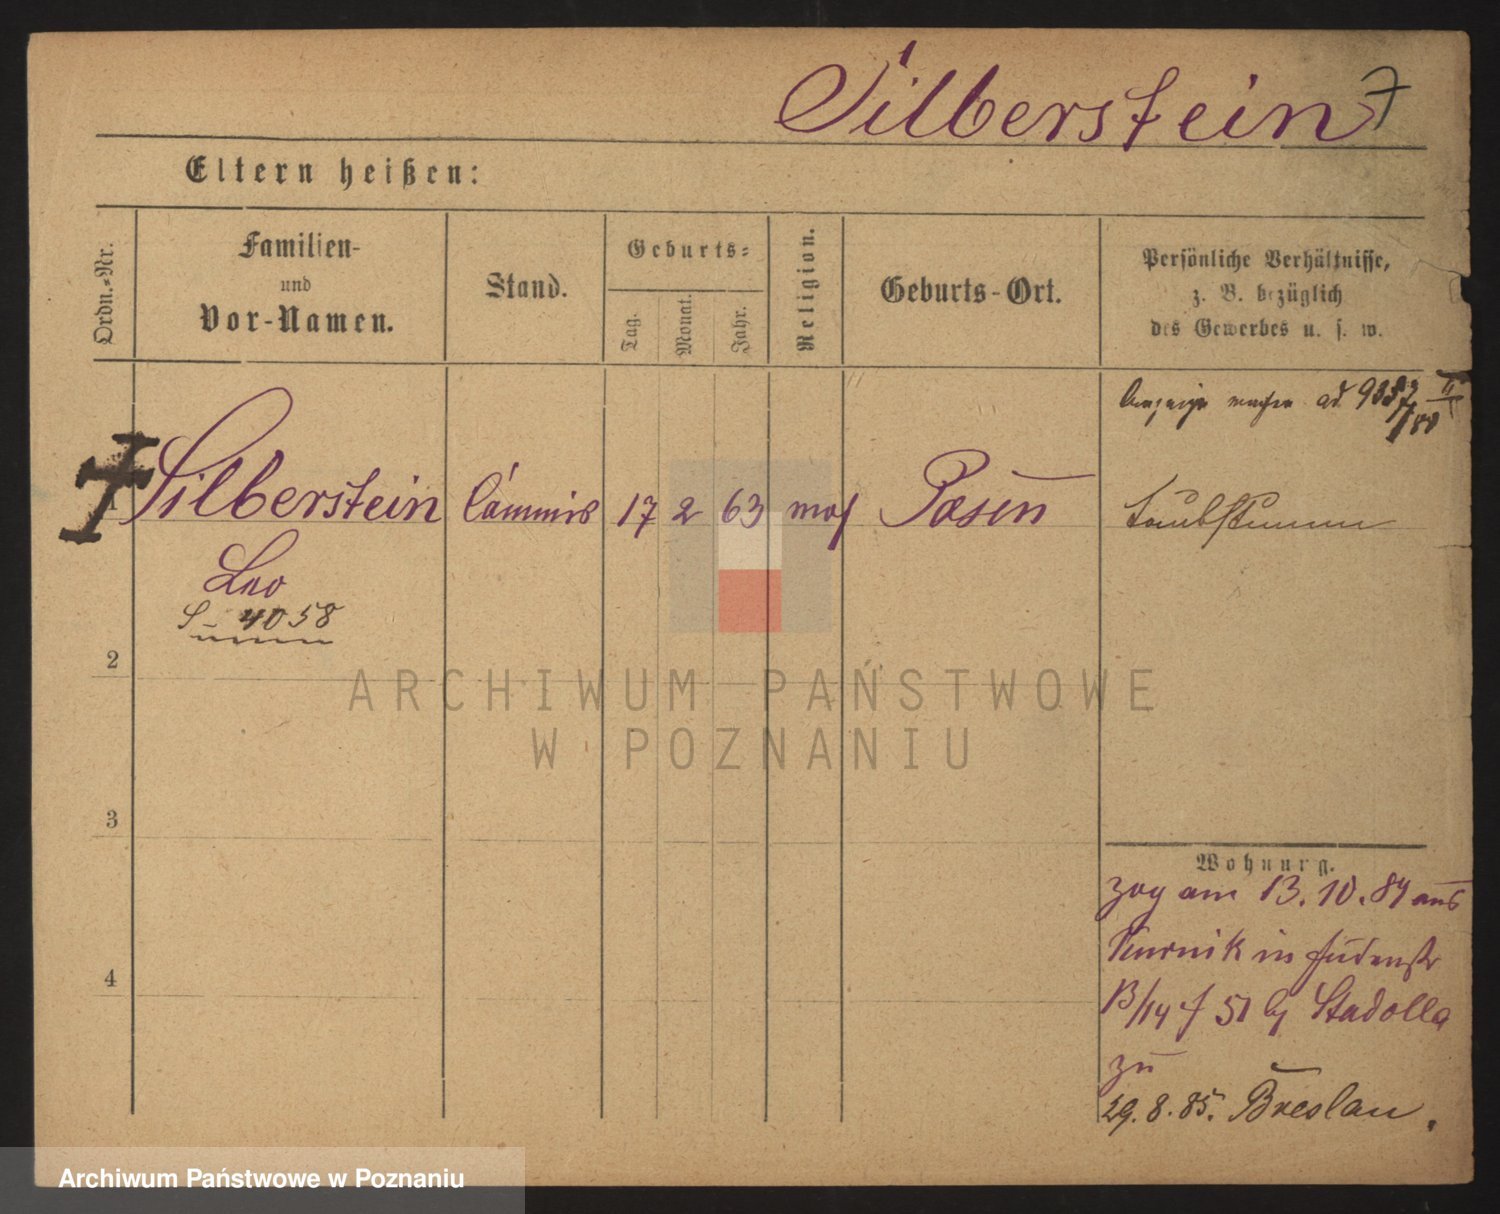 Silberstein 7
Eltern heißen:
Ordn.-Nr.
Familien-
und
Vor-Namen.
Stand.
Geburts-
Tag.
Monat.
Jahr.
Religion.
Geburts-Ort.
Persönliche Verhältnisse,
z. B. bezüglich
des Gewerbes u. s. w.
Anzeige machen ad
1 Silberstein Commis 17 2 63 mos Posen Taubstumm
Leo
S-4058
2
3
4
Wohnung.
zog am 13.10.84 aus
Kurnik in Judenstr
13/14 f 51 bj Stadolla
zu
29.8.85. Breslau.
ARCHIWUM PAŃSTWOWE
W POZNANIU
Archiwum Państwowe w Poznaniu